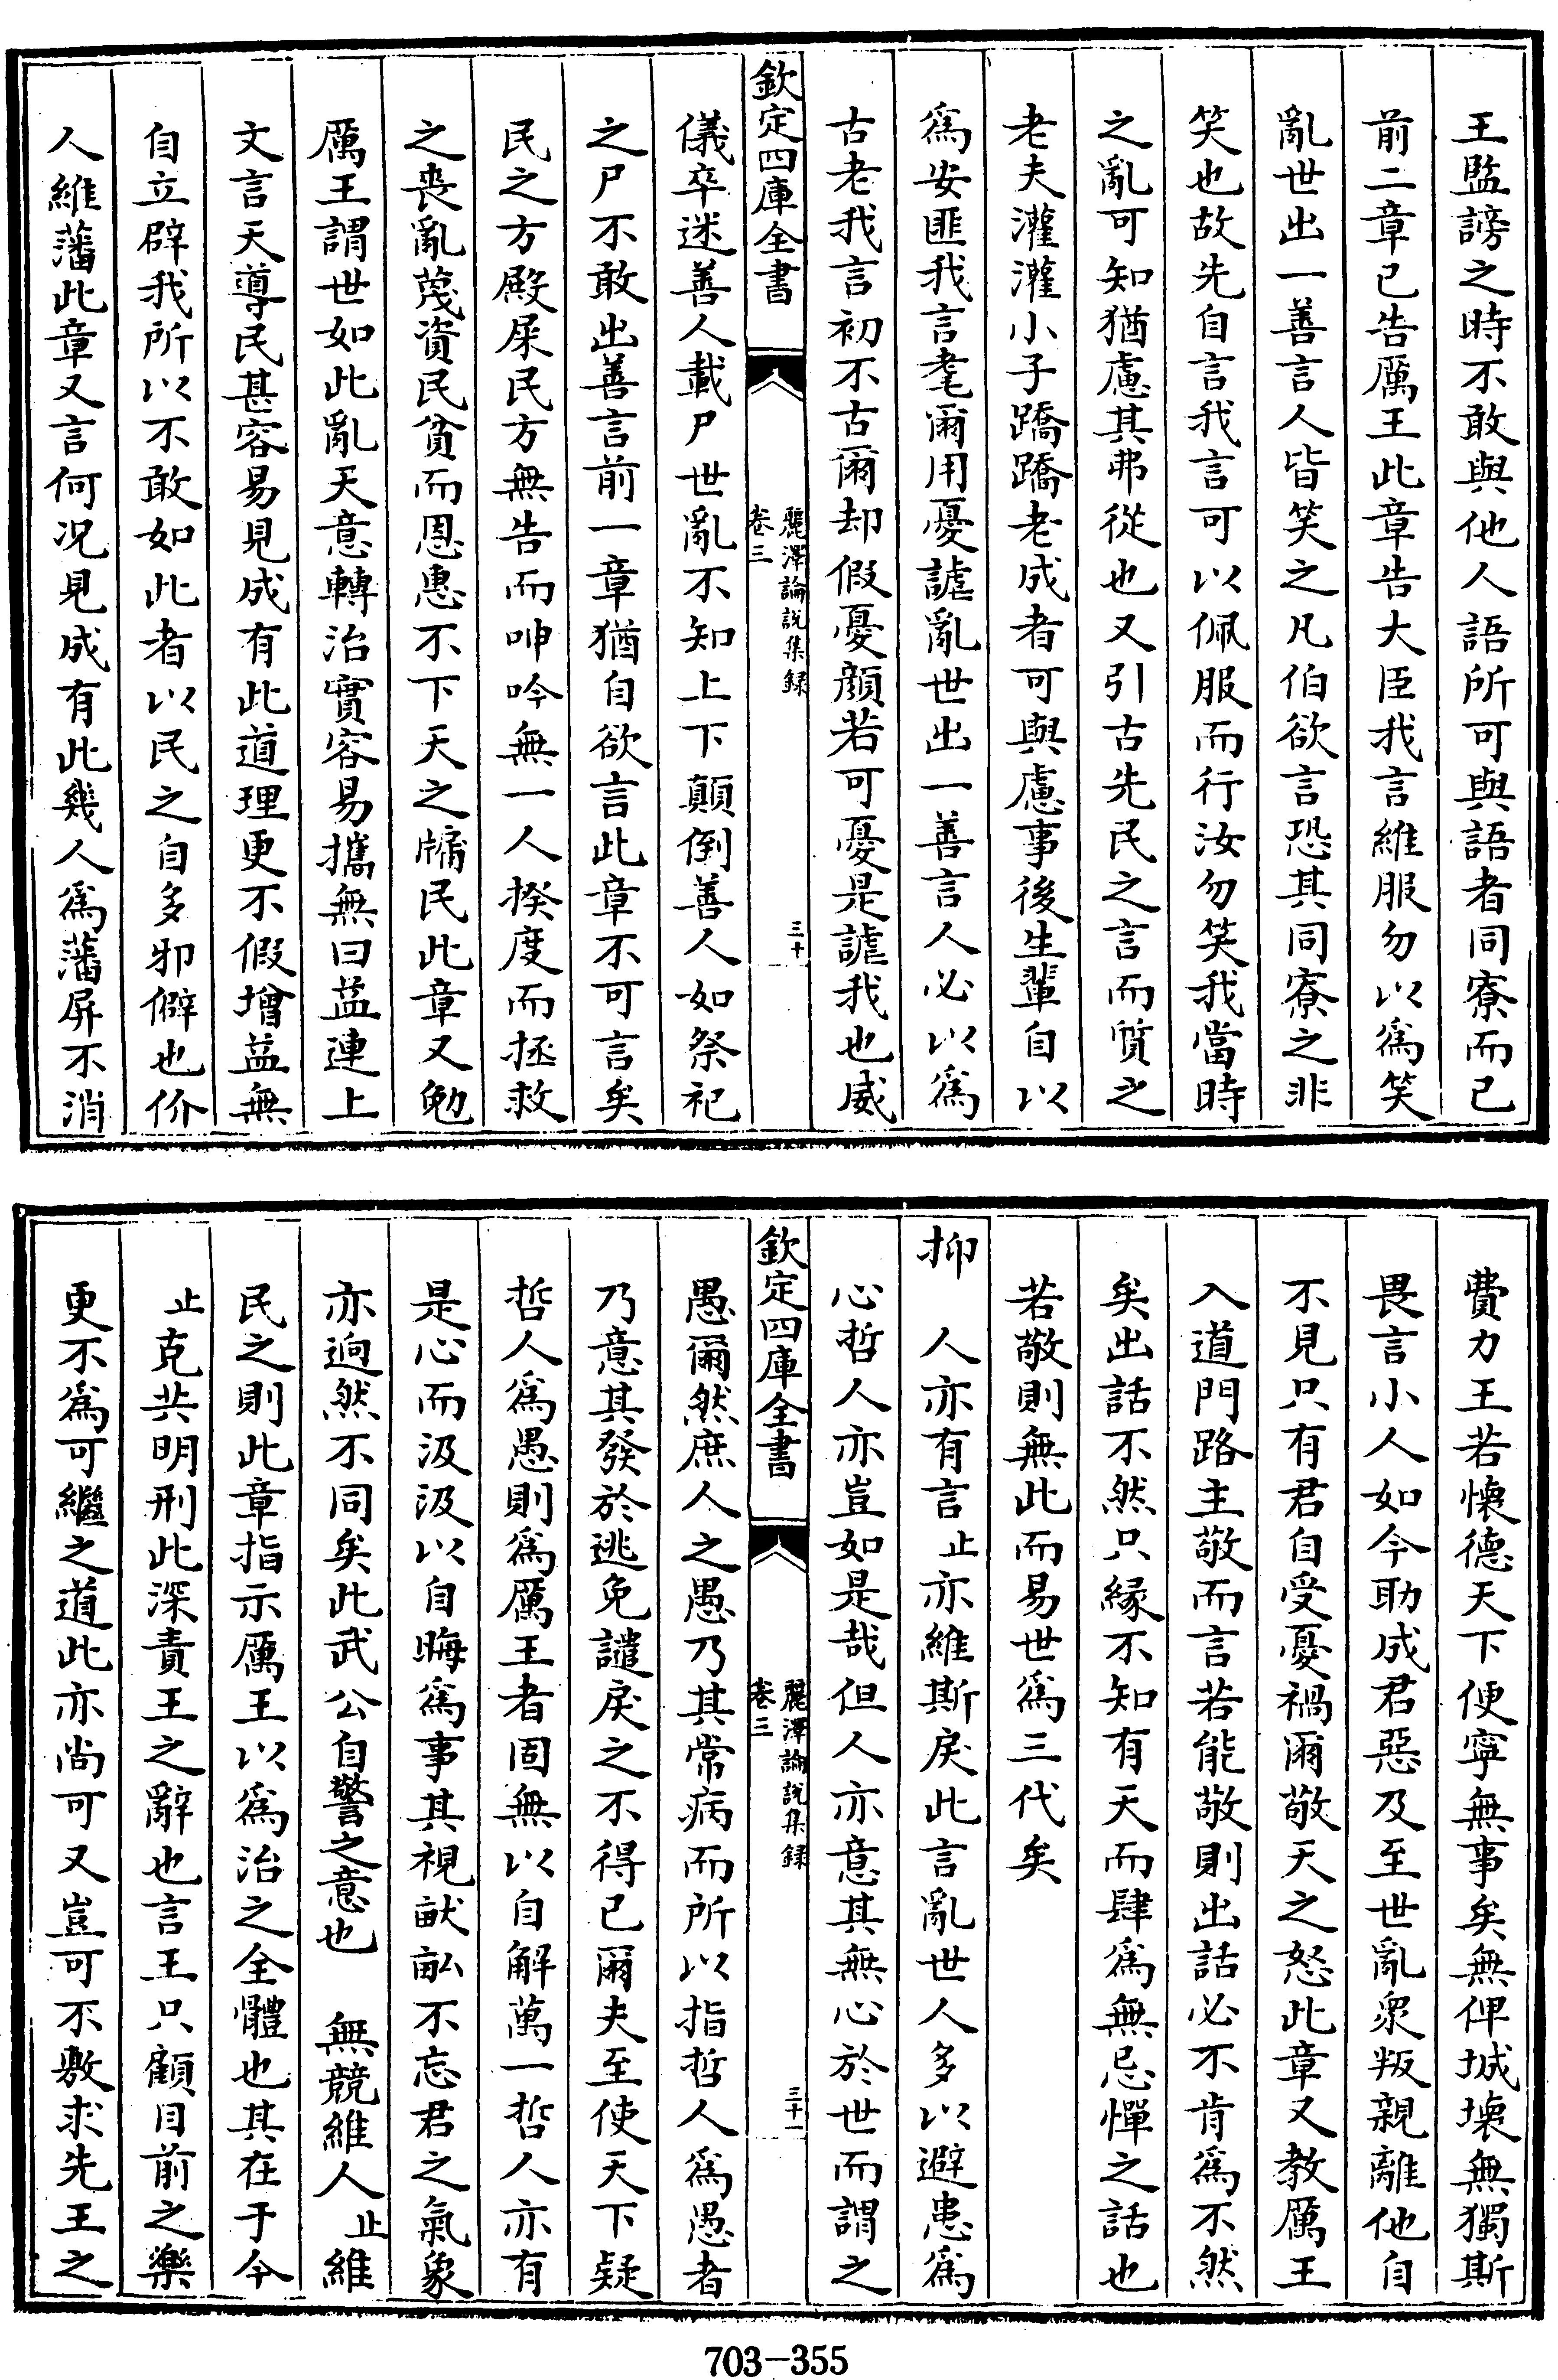 王監謗之時不敢與他人語所可與語者同寮而已
前二章已告厲王此章告大臣我言維服勿以為笑
亂世出一善言人皆笑之凡伯欲言恐其同寮之非
笑也故先自言我言可以佩服而行汝勿笑我當時
之亂可知猶慮其弗從也又引古先民之言而質之
老夫灌灌小子蹻蹻老成者可與慮事後生輩自以
為安匪我言耄爾用憂謔亂世出一善言人必以為
古老我言初不古爾却假憂顔若可憂是謔我也威
欽定四庫全書
麗澤論説集録
卷三
三十
儀卒迷善人載尸世亂不知上下顛倒善人如祭祀
之尸不敢出善言前一章猶自欲言此章不可言矣
民之方殿屎民方無告而呻吟無一人揆度而拯救
之喪亂蔑資民貧而恩惠不下天之牖民此章又勉
厲王謂世如此亂天意轉治實容易攜無曰益連上
文言天導民甚容易見成有此道理更不假增益無
自立辟我所以不敢如此者以民之自多邪僻也价
人維藩此章又言何况見成有此幾人為藩屏不消
費力王若懷德天下便寧無事矣無俾城壞無獨斯
畏言小人如今助成君惡及至世亂衆叛親離他自
不見只有君自受憂禍爾敬天之怒此章又教厲王
入道門路主敬而言若能敬則出話必不肯為不然
矣出話不然只緣不知有天而肆為無忌憚之話也
若敬則無此而易世為三代矣
抑 人亦有言止亦維斯戾此言亂世人多以避患為
心哲人亦豈如是哉但人亦意其無心於世而謂之
欽定四庫全書
麗澤論説集録
卷三
三十一
愚爾然庶人之愚乃其常病而所以指哲人為愚者
乃意其發於逃免譴戾之不得已爾夫至使天下疑
哲人為愚則為厲王者固無以自解萬一哲人亦有
是心而汲汲以自晦為事其視畎畝不忘君之氣象
亦逈然不同矣此武公自警之意也 無競維人止維
民之則此章指示厲王以為治之全體也其在于今
止克共明刑此深責王之辭也言王只顧目前之樂
更不為可繼之道此亦尚可又豈可不敷求先王之
703-355